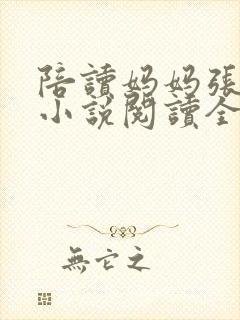 陪讀媽媽張
小說閱讀全
無它之